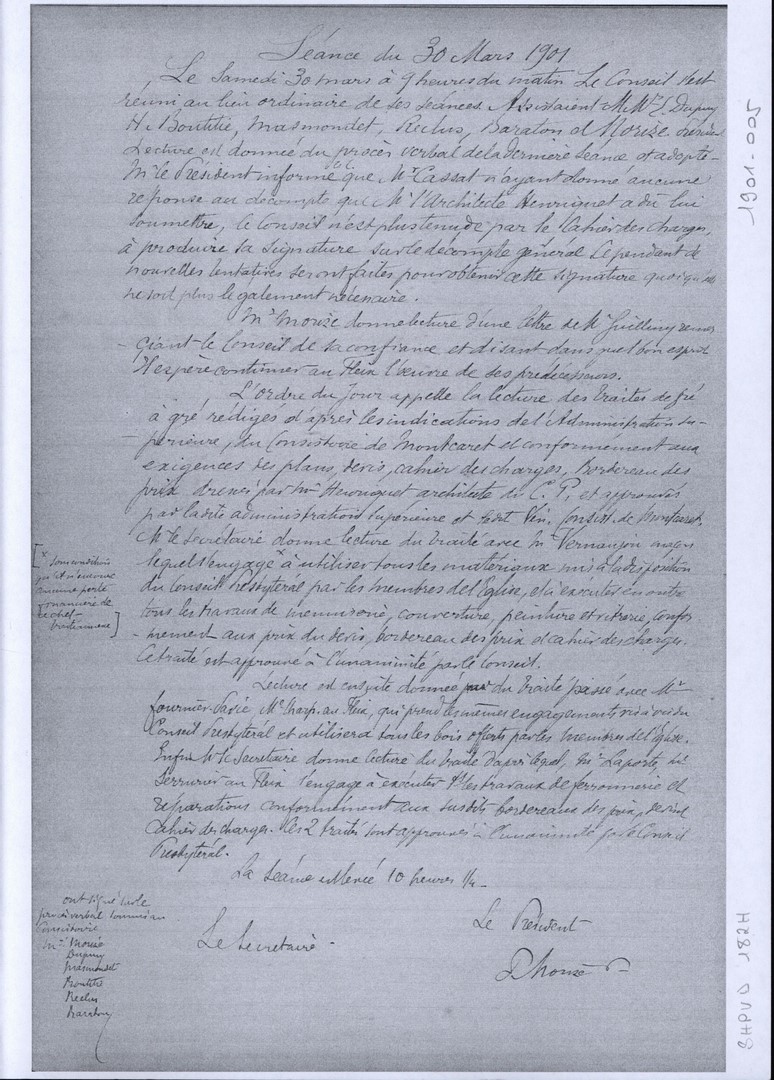 Séance du 30 Mars 1901
Le Samedi 30 mars à 9 heures du matin Le Conseil s'est
réuni au lieu ordinaire de ses séances. Assistaient M.Mrs Dupuy
H. Bontitie, Masmondet, Reclus, Baraton et Morize Président
Lecture est donnée du procès verbal de la dernière séance et adopté.
Mr le Président informe que Mr Cassat n'ayant donné aucune
réponse au décompte que Mr l'Architecte Henriquet a dû lui
soumettre, le Conseil n'est plus tenu de par le Cahier des charges,
à produire sa signature sur le décompte général. Cependant de
nouvelles tentatives seront faites pour obtenir cette signature quoiqu'elle
ne soit plus légalement nécessaire.
Mr Morize donne lecture d'une lettre de Mr remer
ciant le Conseil de sa confiance et disant dans quel bon esprit
Il espère continuer au Fleix l'œuvre de ses prédécesseurs.
L'ordre du Jour appelle la lecture des traités de gré
à gré rédigés d'après les indications de l'Administration su-
périeure, du Consistoire de Montcaret et conformément aux
exigences des plans, devis, cahier des charges, Bordereau des
prix dressés par Mr Henriquet architecte du C. P. et approuvés
par la dite administration supérieure et Consist. de Montcaret
Mr le Secrétaire donne lecture du traité avec Mr Vernanjou maçon
lequel s'engage x à utiliser tous les matériaux mis à la disposition
du Conseil Presbytéral par les membres de l'Eglise, et à exécuter en outre
tous les travaux de menuiserie, couverture, peinture et vitrerie, confor
mément aux prix du devis, bordereau des prix et cahier des charges.
Ce traité est approuvé à l'unanimité par le Conseil.
[x sous conditions
qu'il n'encoure
aucune perte
financière de
ce chef
]
Lecture est ensuite donnée du traité passé avec Mr
Fournier Md Charp. au Fleix, qui prend les mêmes engagements vis à vis du
Conseil Presbytéral et utilisera tous les bois offerts par les membres de l'Eglise.
Enfin Mr le Secrétaire donne lecture du traité d'après lequel, Mr Laporte,
Serrurier au Fleix s'engage à exécuter ts les travaux de ferronnerie et
réparations conformément aux susdits bordereaux des prix, devis et
Cahier des charges. Les 2 traités sont approuvés à l'unanimité par le Conseil
Presbytéral.
La Séance est levée 10 heures 1/4
ont signé sur le
procès verbal soumis au
Consistoire
Mrs Morize
Dupuy
Masmondet
Bontitie
Reclus
Baraton
Le Secrétaire.
Le Président
Morize
1901-005
SHPVD 182H